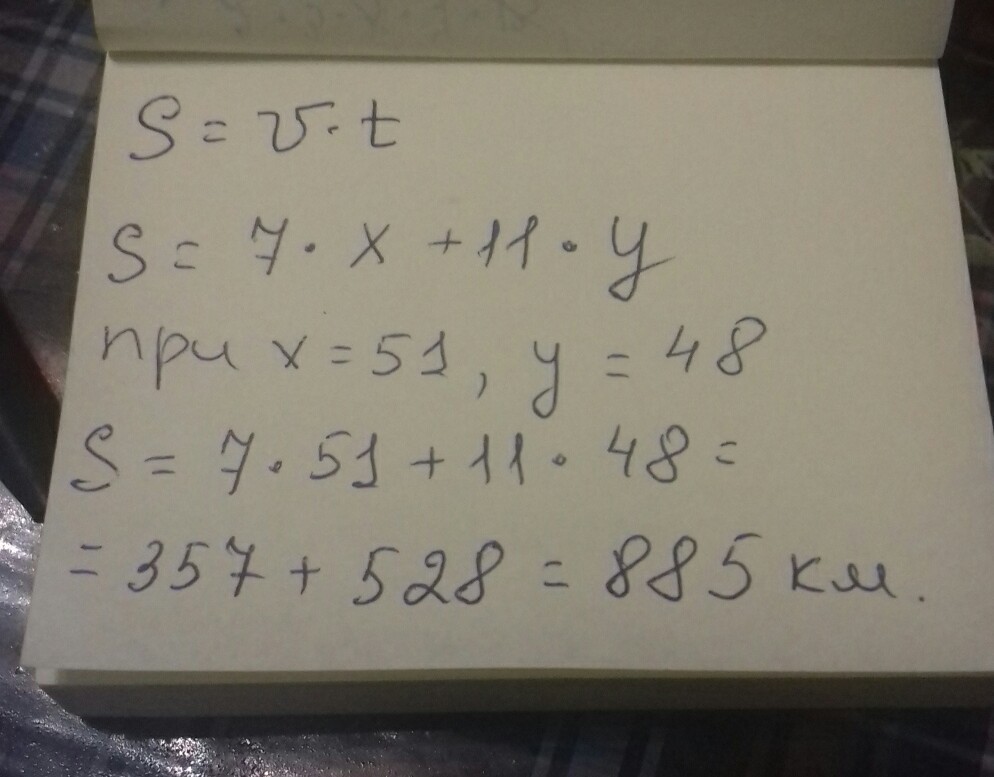 S = v · t
S = 7 · x + 11 · y
при x = 51, y = 48
S = 7 · 51 + 11 · 48 =
= 357 + 528 = 885 км.